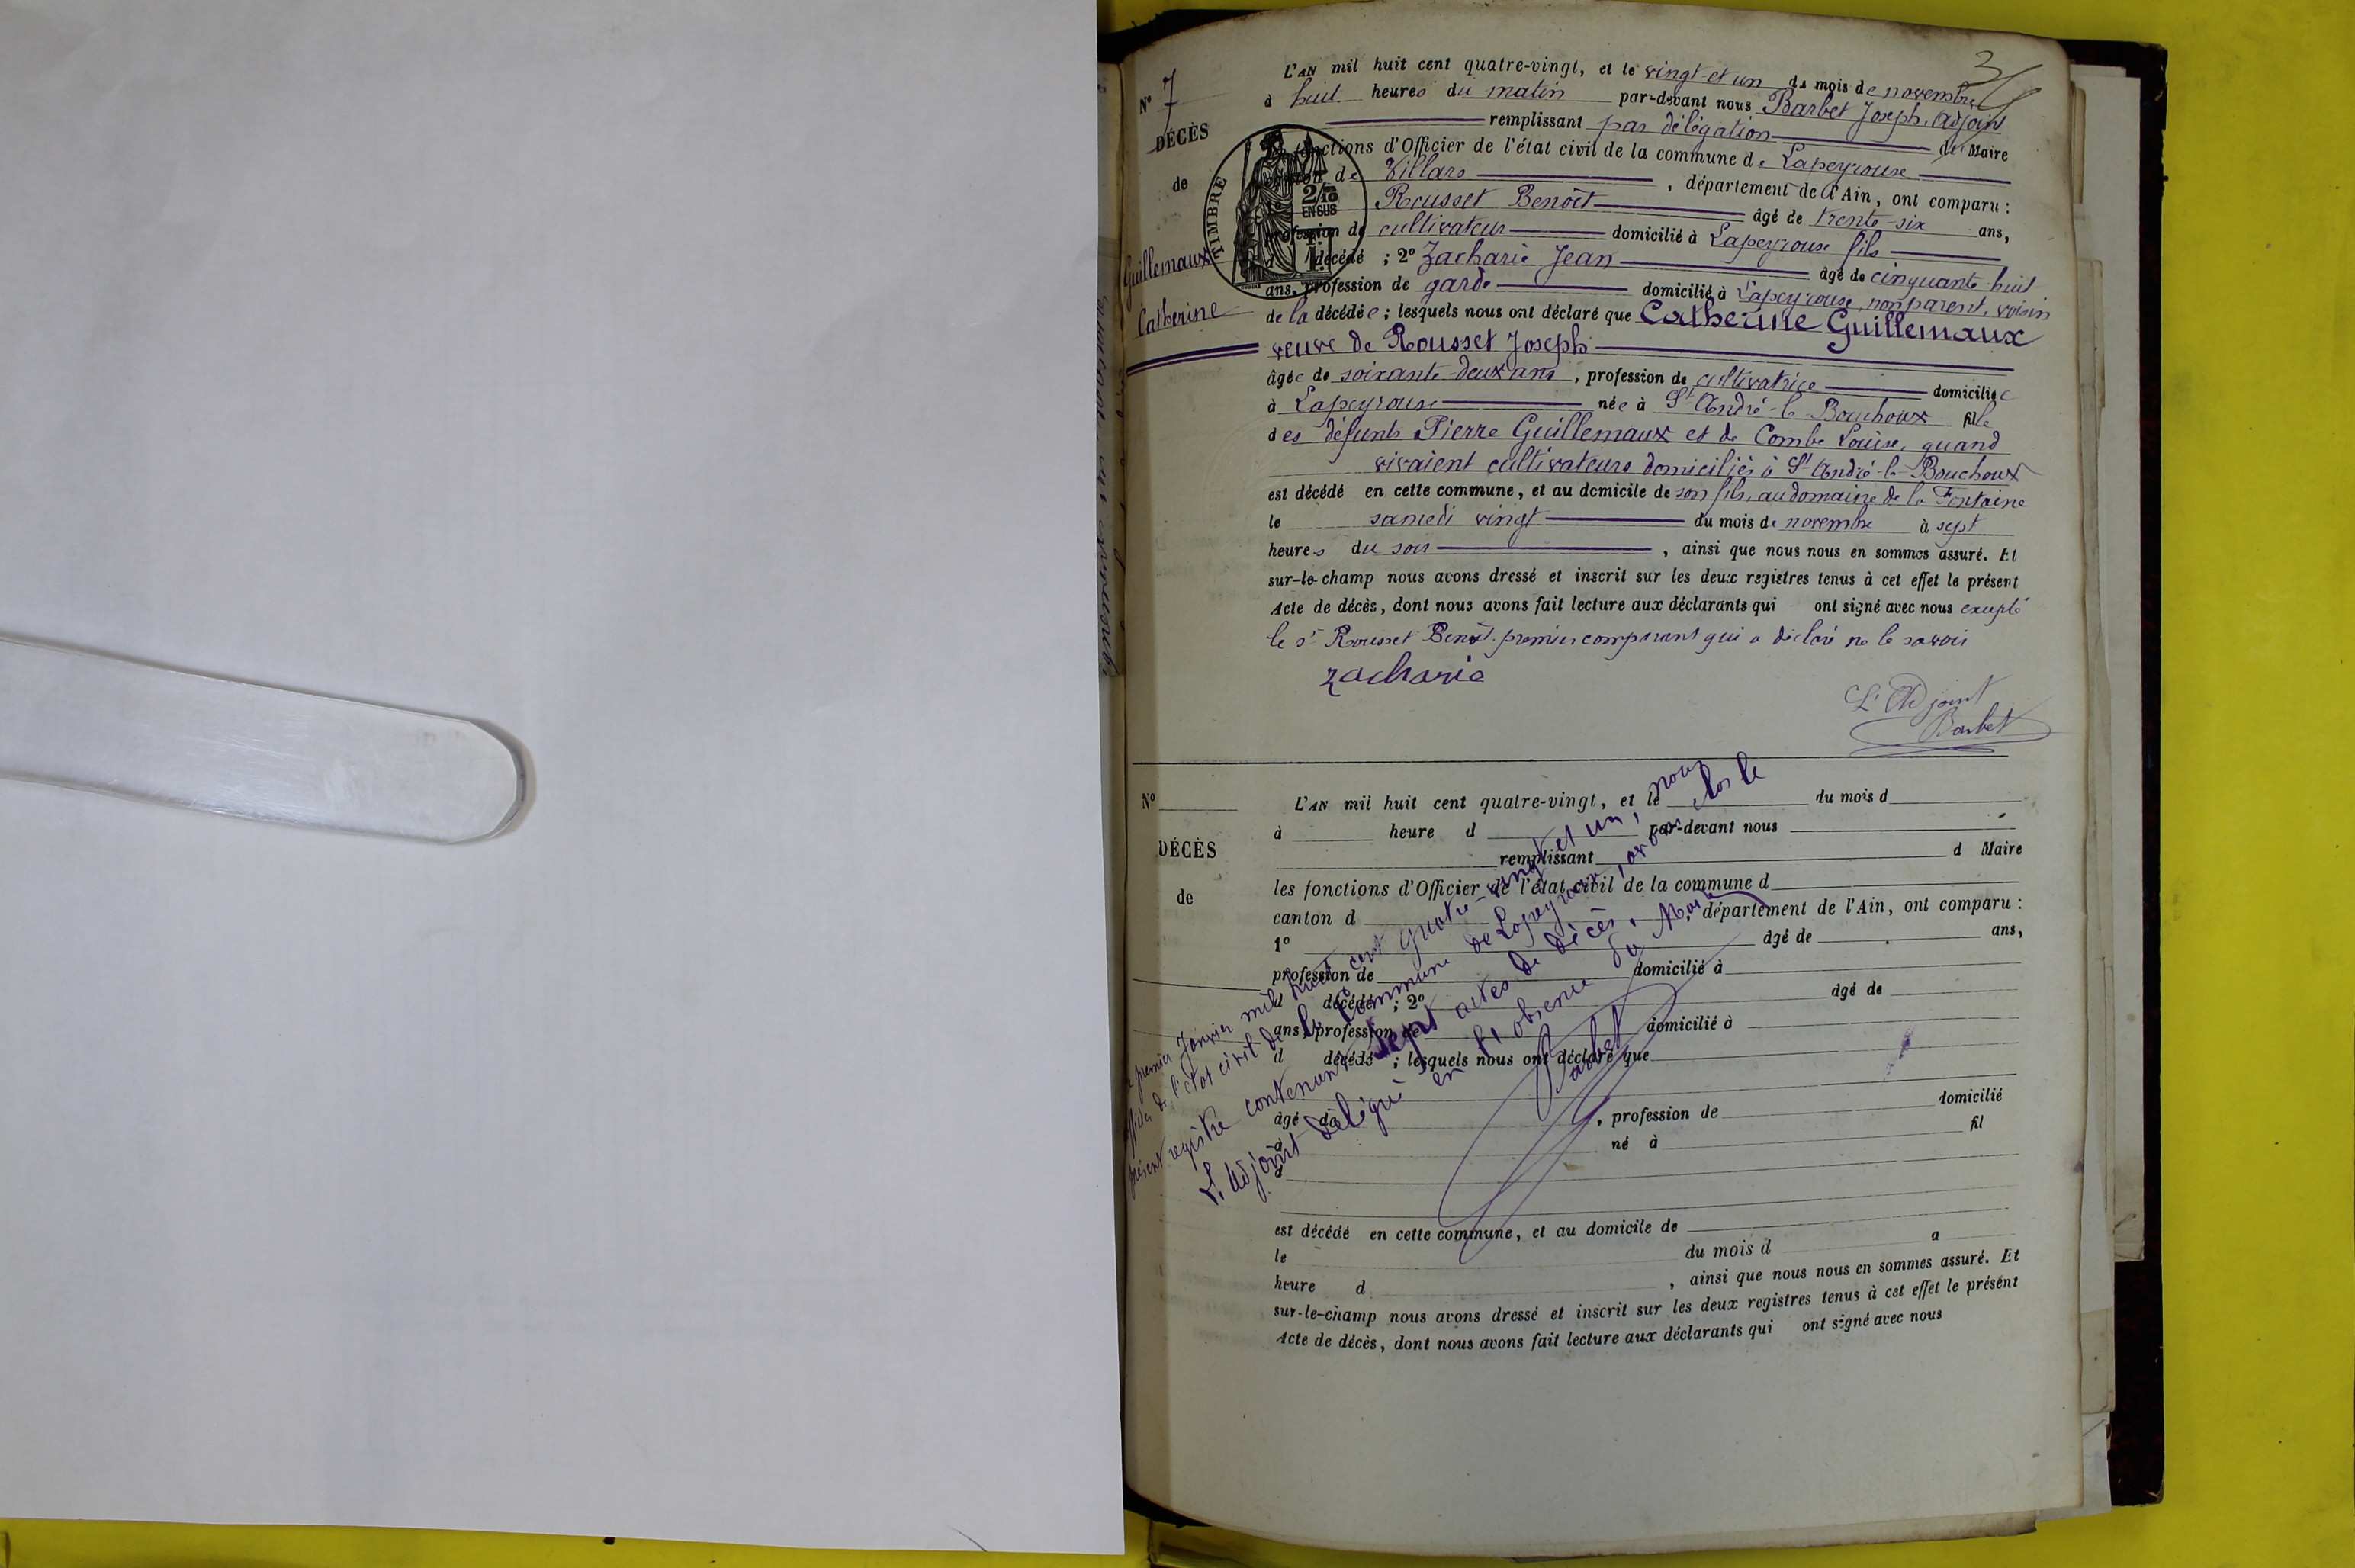 3
N° 7
DÉCÈS
de
Guillemaux
Catherine
L'AN mil huit cent quatre-vingt, et le vingt-et un du mois de novembre
à huit heures du matin par-devant nous Barbet Joseph, adjoint
remplissant par délégation du Maire
fonctions d'Officier de l'état civil de la commune de Lapeyrouse
canton de Villars, département de l'Ain, ont comparu :
Rousset Benoît âgé de trente-six ans,
profession de cultivateur domicilié à Lapeyrouse fils
décédé ; 2° Zacharie Jean âgé de cinquante huit
ans, profession de garde domicilié à Lapeyrouse, non parent, voisin
de la décédée ; lesquels nous ont déclaré que Catherine Guillemaux
veuve de Rousset Joseph
âgée de soixante-deux ans, profession de cultivatrice domiciliée
à Lapeyrouse née à St André-le-Bouchoux fille
des défunts Pierre Guillemaux et de Combe Louise, quand
vivaient cultivateurs domiciliés à St André-le-Bouchoux
est décédé en cette commune, et au domicile de son fils, au domaine de la Fontaine
le samedi vingt du mois de novembre à sept
heures du soir, ainsi que nous nous en sommes assuré. Et
sur-le-champ nous avons dressé et inscrit sur les deux registres tenus à cet effet le présent
Acte de décès, dont nous avons fait lecture aux déclarants qui ont signé avec nous excepté
le sr Rousset Benoît premier comparant qui a déclaré ne le savoir
zacharie
L'Adjoint
Barbet
TIMBRE
2/10
EN SUS
N°
DÉCÈS
de
L'AN mil huit cent quatre-vingt, et le du mois d
à heure d par-devant nous
remplissant d Maire
les fonctions d'Officier de l'état civil de la commune d
canton d , département de l'Ain, ont comparu :
1° âgé de ans,
profession de domicilié à
d décédé ; 2° âgé de
ans, profession de domicilié à
d décédé ; lesquels nous ont déclaré que
âgé de , profession de domicilié
à né à fil
d
est décédé en cette commune, et au domicile de
le du mois d à
heure d , ainsi que nous nous en sommes assuré. Et
sur-le-champ nous avons dressé et inscrit sur les deux registres tenus à cet effet le présent
Acte de décès, dont nous avons fait lecture aux déclarants qui ont signé avec nous
premier Janvier mil huit cent quatre-vingt et un, nous
officier de l'état civil de la commune de Lapeyrouse, avons clos le
présent registre contenant sept actes de décès.
L'Adjoint délégué en l'absence du Maire
Barbet